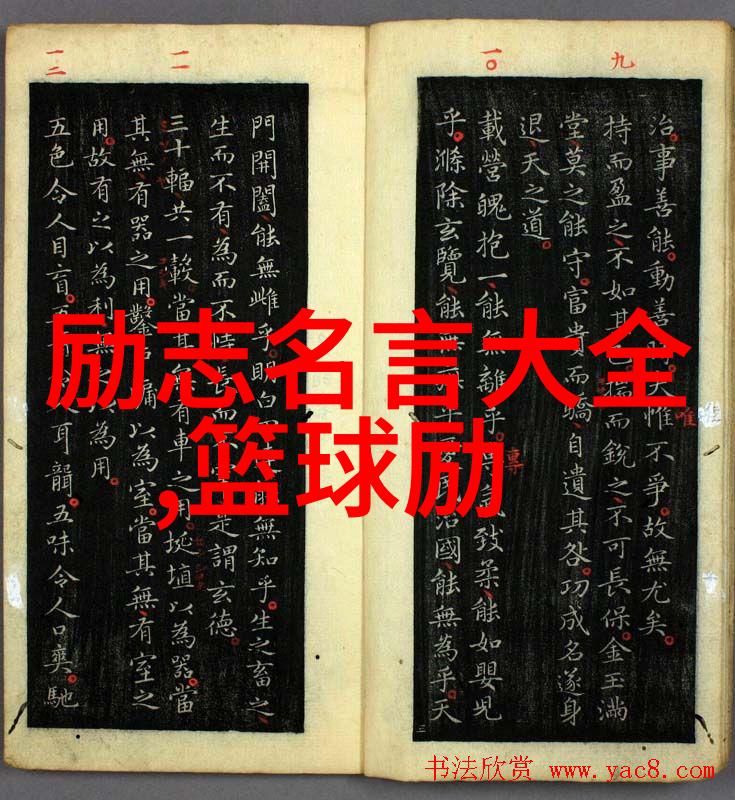 九
一〇
一一
一二
治。事善能。動善夫惟不爭。故無尤矣。
唯
持而盈之不如其揣而銳之不可長保。金玉滿
堂莫之能守。富貴而驕自遺其咎功成名遂身
退天之道。
載營魄抱一能無離乎。氣致柔能如嬰兒
專
乎。滌除玄覽能無乎治國能無為乎。天
門開闔能無雌乎。明白能無知乎。生之畜之
生而不有為而不恃長而是謂玄德。
三十輻共一轂當其有車之用。挻埴以為器當
其無有器之用。鑿牖以為室當其無有室之
用。故有之以為利為用。
五色令人目盲。五耳聾。五味令人口爽。馳
励志名言大全
,篮球励
书法欣赏 www.yac8.com